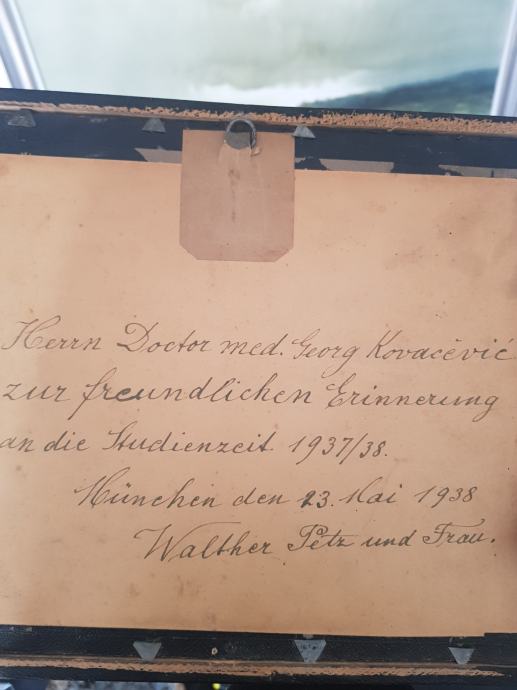 Herrn Doctor med. Georg Kovačević
zur freundlichen Erinnerung
an die Studienzeit 1937/38.
München den 23. Mai 1938
Walther Petz und Frau.